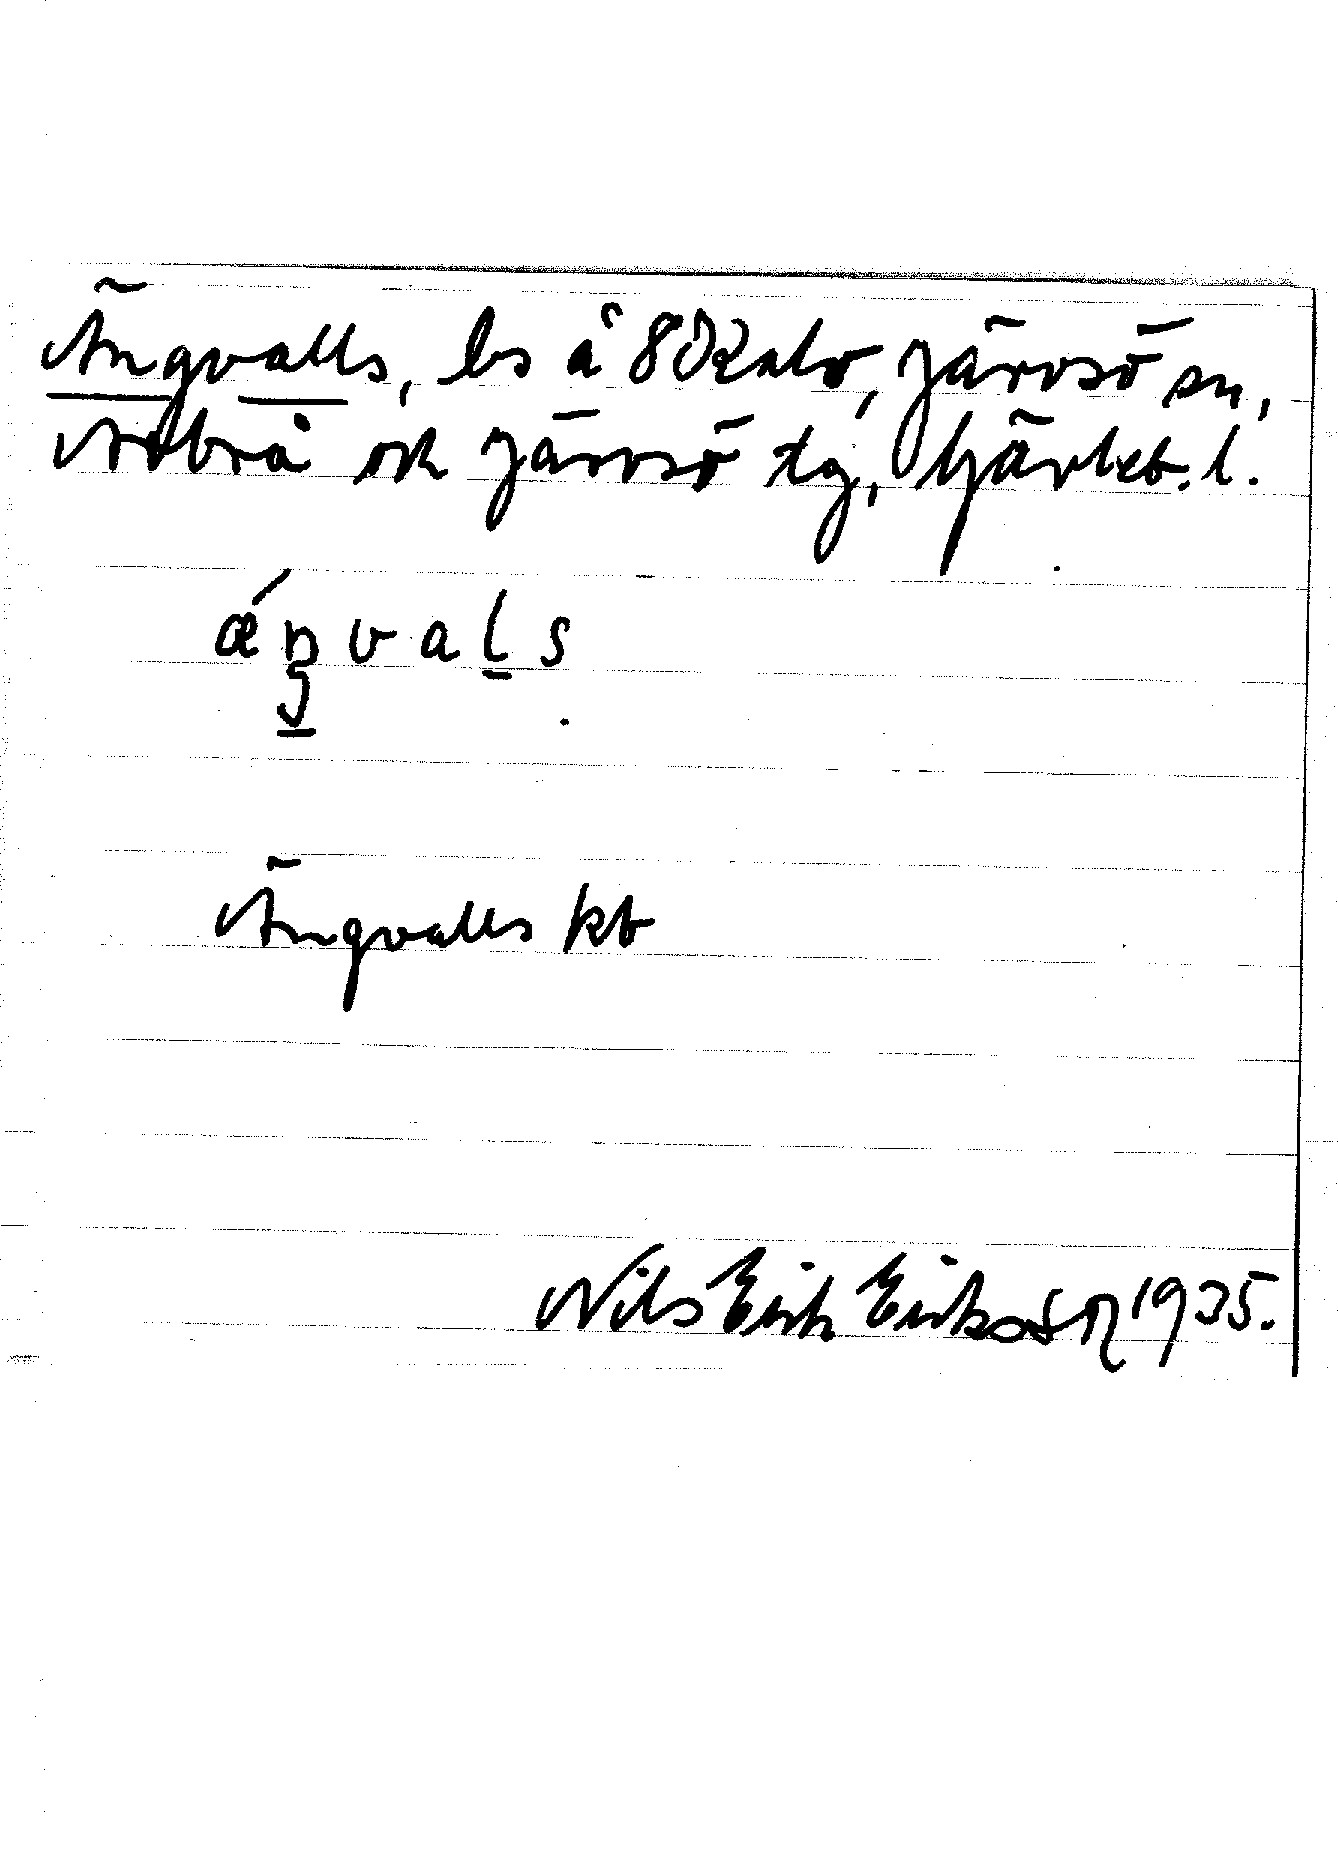 Ängvalls, bs å 8 Kalv, Järvsö sn,
Arbrå och Järvsö tg, Gävleb. l.
ǽŋvals
Ängvalls kb
Nils Erik Eriksson 1935.